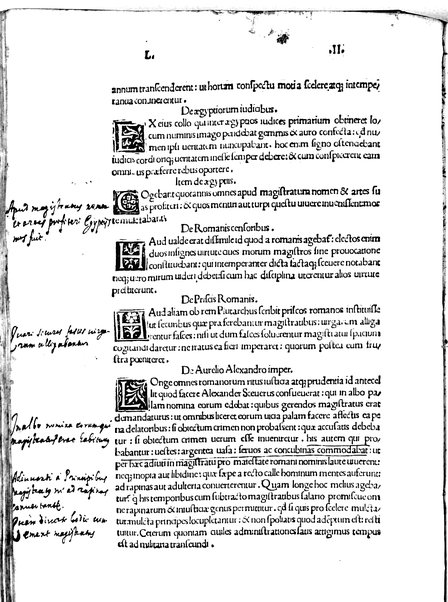 L. .II.
annum transcenderent: ut horum conspectu moti a scelere atq; intempe
rantia continerentur.
De ægyptiorum iudicibus.
EX eius collo qui inter ægyptios iudices primarium obtineret lo
cum numinis imago pendebat gemmis & auro confecta: qd nu
men ipsi ueritatem nuncupabant. hoc enim signo ostendebant
iudices cordi onq; ueritatem inesse semper debere: & cum conspicerent eam
omni. us præferre rebus oportere.
Item de ægyptiis.
COgebant quotannis omnes apud magistratum nomen & artes su
as profiteri: & quos mentiri aut turpi quæstu uiuere inuenissent mor
te mulctabant.
De Romanis censoribus.
HAud ualde erat dissimile id quod a romanis agebat: electos enim
duos insignes uirtute ques morum magistros sine prouocatione
constituebant: qui intemperanter dicta factaq; seuere notabant
neq; uero mirum uideri debet si cum hac disciplina uterentur alios uirtute
præstiterunt.
De Priscis Romanis.
HAud aliam ob rem Plutarchus scribit priscos romanos instituisse
ut securibus quæ præferebantur magistratibus: uirgæ alliga
rentur fasces: nisi ut dum fasces soluerentur magistratui spatium
cogitandi daretur: ne iratus ea fieri imperaret: quorum postea cum fru
stra pœniteret.
De Aurelio Alexandro imper.
LOnge omnes romanorum ritus iustitia atq; prudentia id antecel
lit quod facere Alexander Seuerus consueuerat: qui in albo pa
lam nomina eorum edebat: quibus gerendos magistratus erat
demandaturus: ut omnibus liceret eorum uicia palam facere affectis ea pœ
na delatoribus: si obiectum crimen non probassent: quæ accusatis debeba
tur: si obiectum crimen uerum esse inueniretur. his autem qui pro
babantur: uestes: argentea uasa: seruos ac concubinas commodabat: ut
per hæc adiuti in magistratu pro maiestate romani nominis laute uiuerent:
neq; inopia aut libidine: quæ sæpe a recto calle humanas mentes auferunt
ad rapinas aut adulteria conuerterentur. Quam longe hoc melius ageba
tur: q his temporibus cum subtracto magistratibus salario promiscue om
ne rapinarum & iniusticiæ genus permittitur. qd si quis pro scelere mulcta
tur: mulcta principes locupletantur: & non spoliatis quod ademptum est resti
tuitur. Ceterum quoniam ciuiles administrationes satis attigimus tempus
est ad militaria transcendi.
Apud magistratus nomen
et artes profiteri Egyptiis
mos fuit
Quare secures fascis uirga
rum alligabantur
In albo nomina eorum qui
magistratus erat habituri
magistratus